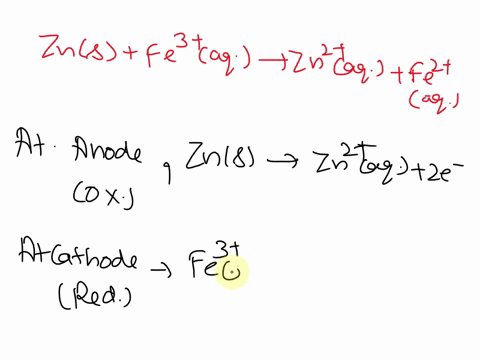 Zn(s) + Fe³⁺(aq.) → Zn²⁺(aq.) + Fe²⁺
(aq.)
At. Anode , Zn(s) → Zn²⁺(aq.) + 2e⁻
(OX.)
At Cathode → Fe³⁺(
(Red.)